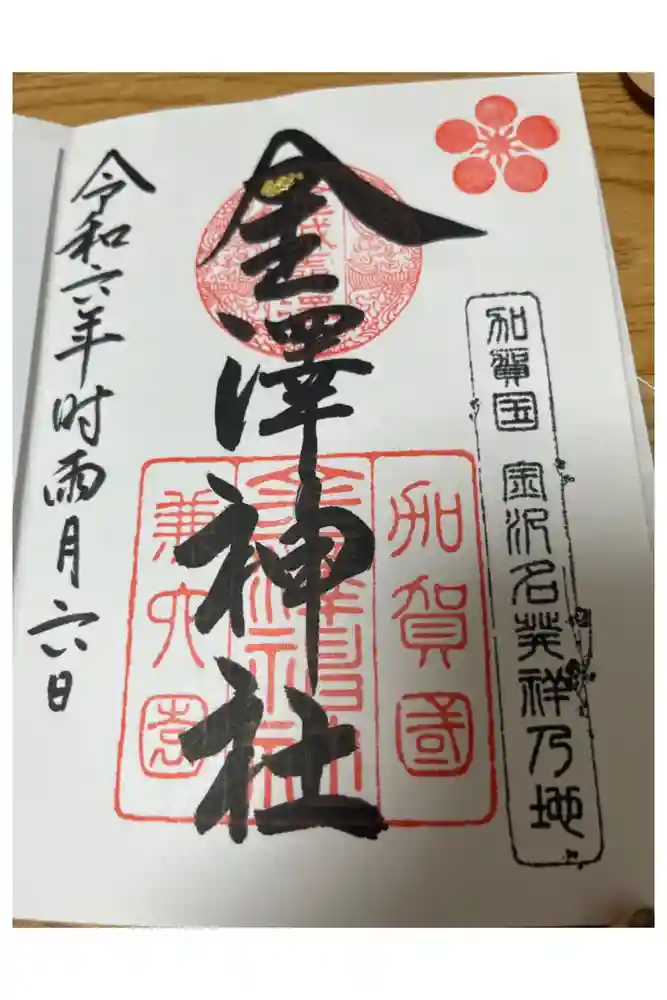 加賀国 金沢名発祥乃地
金澤神社
加賀國
兼六園
令和六年時雨月六日